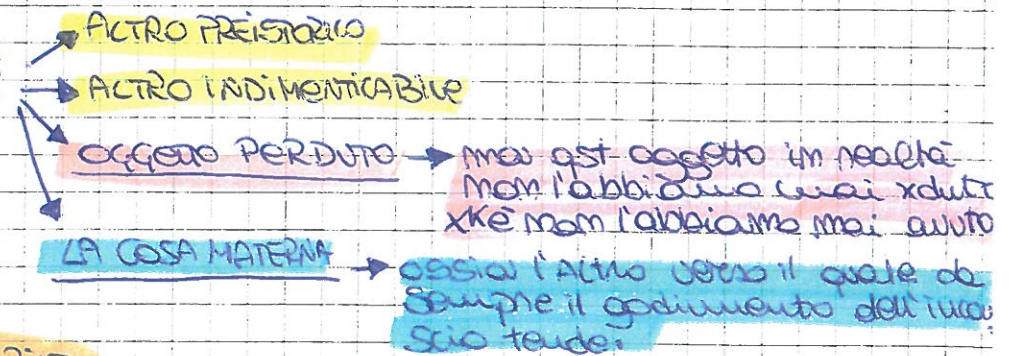 ALTRO PREISTORICO
ALTRO INDIMENTICABILE
OGGETTO PERDUTO → noi qst oggetto in realtà
non l'abbiamo mai xdut
xkè non l'abbiamo mai avuto
LA COSA MATERNA → ossia l'Altro verso il quale da
sempre il godimento dell'inco
scio tende.